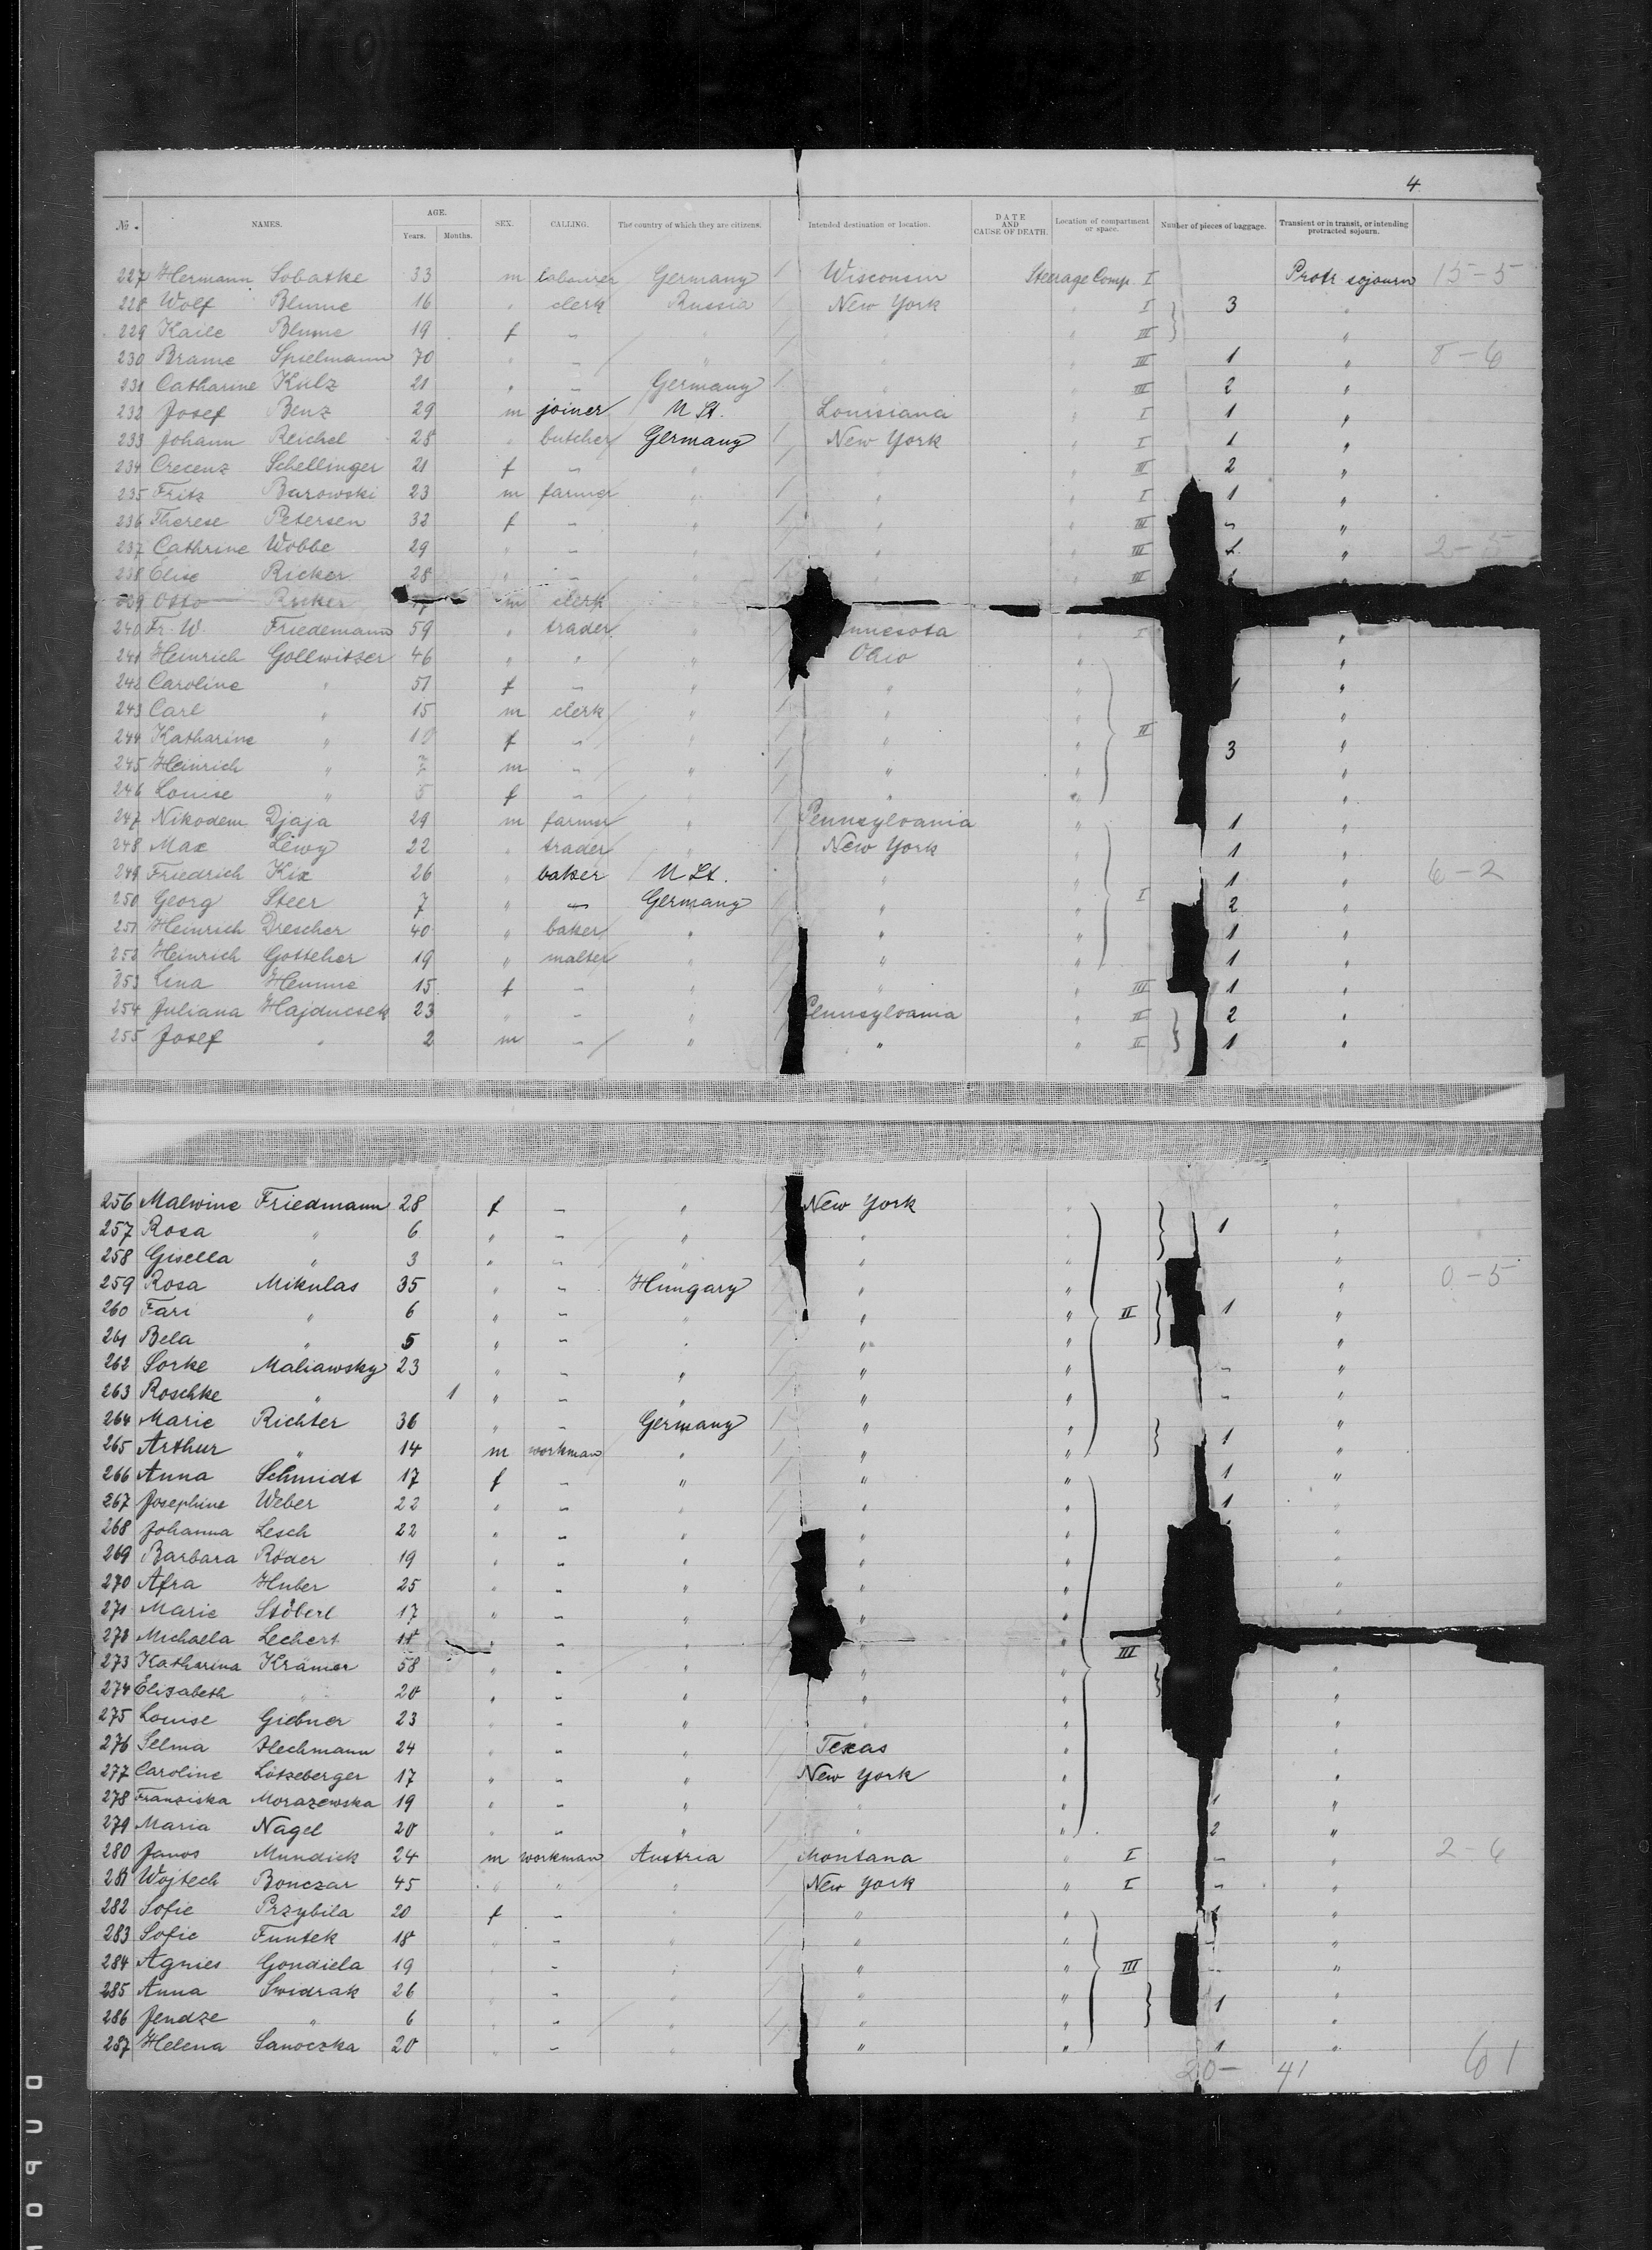 4
№. NAMES. AGE. Years. Months. SEX. CALLING. The country of which they are citizens. Intended destination or location. DATE AND CAUSE OF DEATH. Location of compartment or space. Number of pieces of baggage. Transient or in transit, or intending protracted sojourn.
227 Hermann Sobatke 33 m labourer Germany Wisconsin Steerage Comp. I Protr sojourn 15-5
228 Wolf Blume 16 " clerk Russia New York " I 3 "
229 Kaile Blume 19 f - " " " III "
230 Brame Spielmann 70 " - " " " III 1 " 8-6
231 Catharine Kulz 21 " - Germany " " III 2 "
232 Josef Benz 29 m joiner U St. Louisiana " I 1 "
233 Johann Reichel 28 " butcher Germany New York " I 1 "
234 Crecenz Schellinger 21 f - " " " III 2 "
235 Fritz Barowski 23 m farmer " " " I 1 "
236 Therese Petersen 32 f - " " " III - "
237 Cathrine Wobbe 29 " - " " " III 1 "
238 Elise Ricker 28 " - " " " III 1
239 Otto Ricker m clerk
240 Fr. W. Friedemann 59 " trader " nnesota " I "
241 Heinrich Gollwitzer 46 " " " Ohio " "
242 Caroline " 51 f - " " " 1 "
243 Carl " 15 m clerk " " " II "
244 Katharine " 10 f - " " " 3 "
245 Heinrich " 7 m - " " " "
246 Louise " 5 f - " " " "
247 Nikodem Djaja 29 m farmer " Pennsylvania " 1 "
248 Max Lewy 22 " trader " New York " 1 "
249 Friedrich Kix 26 " baker U St. " " 1 " 6-2
250 Georg Steer 7 " - Germany " " I 2 "
251 Heinrich Drescher 40 " baker " " " 1 "
252 Heinrich Gottcher 19 " malter " " " 1 "
253 Lina Hemme 15 f - " " " III 1 "
254 Juliana Hajducsek 23 " - " Pennsylvania " II 2 "
255 Josef " 2 m - " " " II 1 "
256 Malwine Friedmann 28 f - " New York " "
257 Rosa " 6 " - " " " 1 "
258 Gisella " 3 " - " " " "
259 Rosa Mikulas 35 " - Hungary " " " 0-5
260 Fari " 6 " - " " " II 1 "
261 Bela " 5 " - " " " "
262 Sorke Maliawsky 23 " - " " " - "
263 Roschke " 1 " - " " " - "
264 Marie Richter 36 " - Germany " " "
265 Arthur " 14 m workman " " " 1 "
266 Anna Schmidt 17 f - " " " 1 "
267 Josephine Weber 22 " - " " " 1 "
268 Johanna Lesch 22 " - " " " "
269 Barbara Röder 19 " - " " " "
270 Afra Huber 25 " - " " " "
271 Marie Stöberl 17 " - " " " "
272 Michaela Lechert 18 " - " " " III
273 Katharina Krämer 58 " - " " " "
274 Elisabeth " 20 " - " " " "
275 Louise Giebner 23 " - " " " "
276 Selma Hechmann 24 " - " Texas " "
277 Caroline Lötzeberger 17 " - " New York " "
278 Franziska Morazewska 19 " - " " " 1 "
279 Maria Nagel 20 " - " " " 2 "
280 Janos Mundick 24 m workman Austria Montana " I - " 2-6
281 Wojtech Bonczar 45 " " " New York " I - "
282 Sofie Przybila 20 f - " " " 1 "
283 Sofie Funtek 18 " - " " " - "
284 Agnies Gondiela 19 " - " " " III - "
285 Anna Swidrak 26 " - " " " "
286 Jendze " 6 " - " " " 1 "
287 Helena Sanoczka 20 " - " " " 1 "
20- 41 61